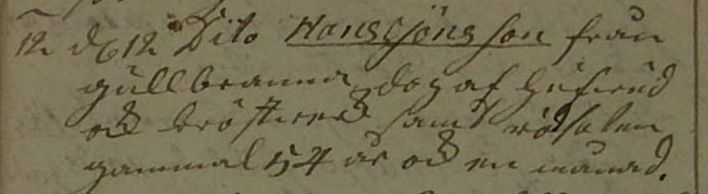 12 d 12 Dito Hans Jönsson från
gullbranna dog af hufwud
och bröstwerk samt rödsoten
gammal 54 år och en månad.